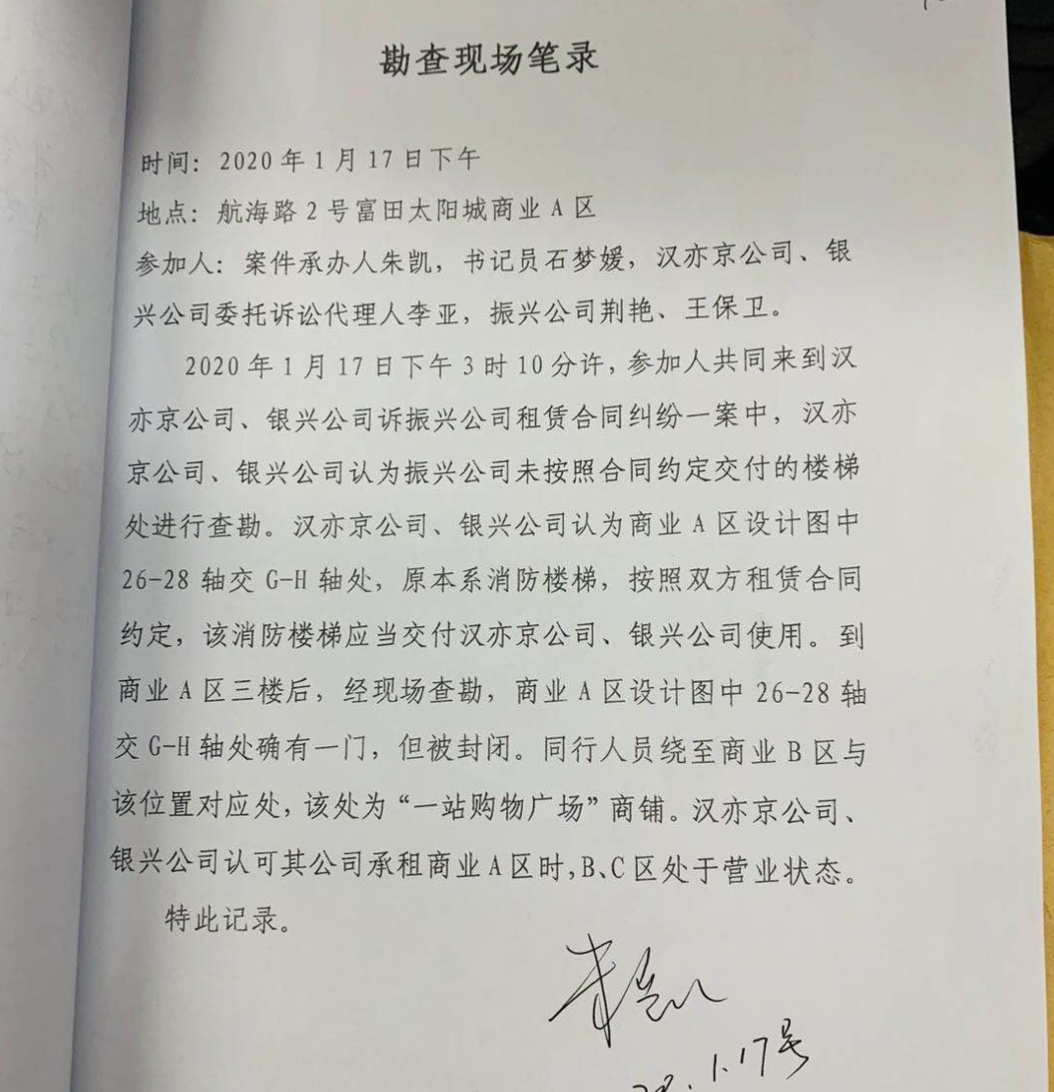 勘查现场笔录
时间：2020年1月17日下午
地点：航海路2号富田太阳城商业A区
参加人：案件承办人朱凯，书记员石梦媛，汉亦京公司、银
兴公司委托诉讼代理人李亚，振兴公司荆艳、王保卫。
2020年1月17日下午3时10分许，参加人共同来到汉
亦京公司、银兴公司诉振兴公司租赁合同纠纷一案中，汉亦
京公司、银兴公司认为振兴公司未按照合同约定交付的楼梯
处进行查勘。汉亦京公司、银兴公司认为商业A区设计图中
26-28轴交G-H轴处，原本系消防楼梯，按照双方租赁合同
约定，该消防楼梯应当交付汉亦京公司、银兴公司使用。到
商业A区三楼后，经现场查勘，商业A区设计图中26-28轴
交G-H轴处确有一门，但被封闭。同行人员绕至商业B区与
该位置对应处，该处为“一站购物广场”商铺。汉亦京公司、
银兴公司认可其公司承租商业A区时，B、C区处于营业状态。
特此记录。
朱凯
1.17号